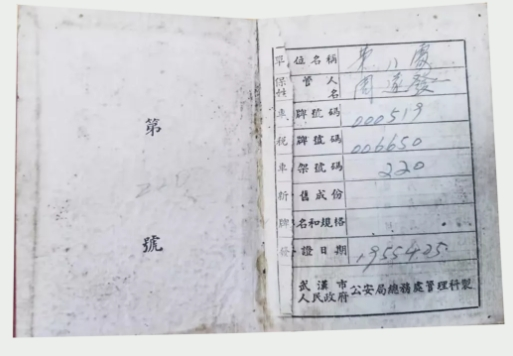 第
號
單位名稱
保管人姓名
車牌號碼 000519
稅牌號碼 006650
車架號碼 220
新舊成份
牌名和規格
發證日期 1955.4.25
武漢市人民政府公安局總務處管理科製